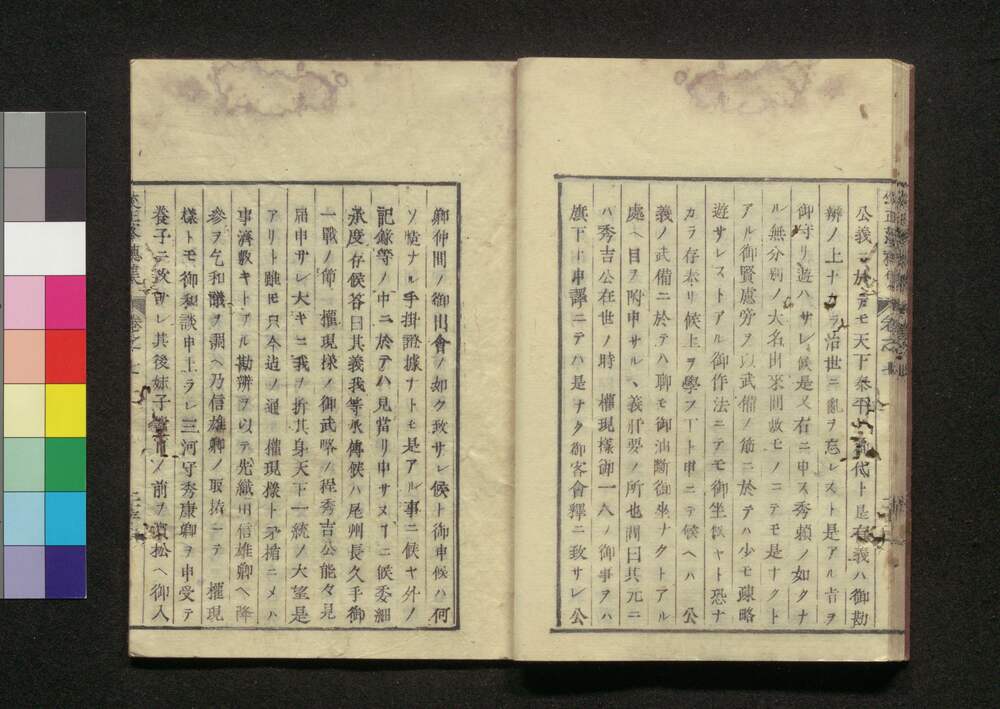 公義ニ於テモ天下泰平ノ代ト是有義ハ御勘
辨ノ上ナカラ治世ニ亂ヲ忘レスト是アル古ヲ
御守リ遊ハサレ候是又右ニ申ス秀頼ノ如クナ
ル無分別ノ大名出來間敷モノニテモ是ナクト
アル御賢慮旁ヲ以武備ノ筋ニ於テハ少モ疎略
遊サレストアル御作法ニテモ御坐候ヤト恐ナ
カラ存奉リ候上ヲ學フ下ト申ニテ候ヘハ 公
義ノ武備ニ於テハ聊モ御油斷御坐ナクトアル
處ヘ目ヲ附申サルヽ義肝要ノ所也問曰其元ニ
ハ秀吉公在世ノ時 權現樣御一人ノ御事ヲハ
旗下ト申譯ニテハ是ナク御客會釋ニ致サレ公
卿仲間ノ御出會ノ如ク致サレ候ト御申候ハ何
ソ慥ナル手掛證據ナトモ是アル事ニ候ヤ外ノ
記録等ノ中ニ於テハ見當リ申サヌ丨ニ候委細
承度存候答曰其義我等承傳候ハ尾州長久手御
一戰ノ節 權現樣ノ御武略ノ程秀吉公能々見
屆申サレ大キニ我ヲ折其身天下一統ノ大望是
アリト雖モ只今迠ノ通 權現樣ト矛楯ニメハ
事濟敷キトアル勘辨ヲ以テ先織田信雄卿ヘ降
參ヲ乞和議ヲ調ヘ乃信雄卿ノ取持ニテ 權現
樣トモ御和談申上ラレ三河守秀康卿ヲ申受テ
養子ニ致サレ其後妹子ノ前ヲ濱松ヘ御入